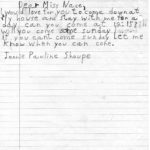 Dear Miss Nave,
I would love for you to come down at
My house and stay with me for a
day can you come at 12:15
will you come some sunday I want
if you cant come sunday let me
know when you can come.
Jennie Pauline Shoupe